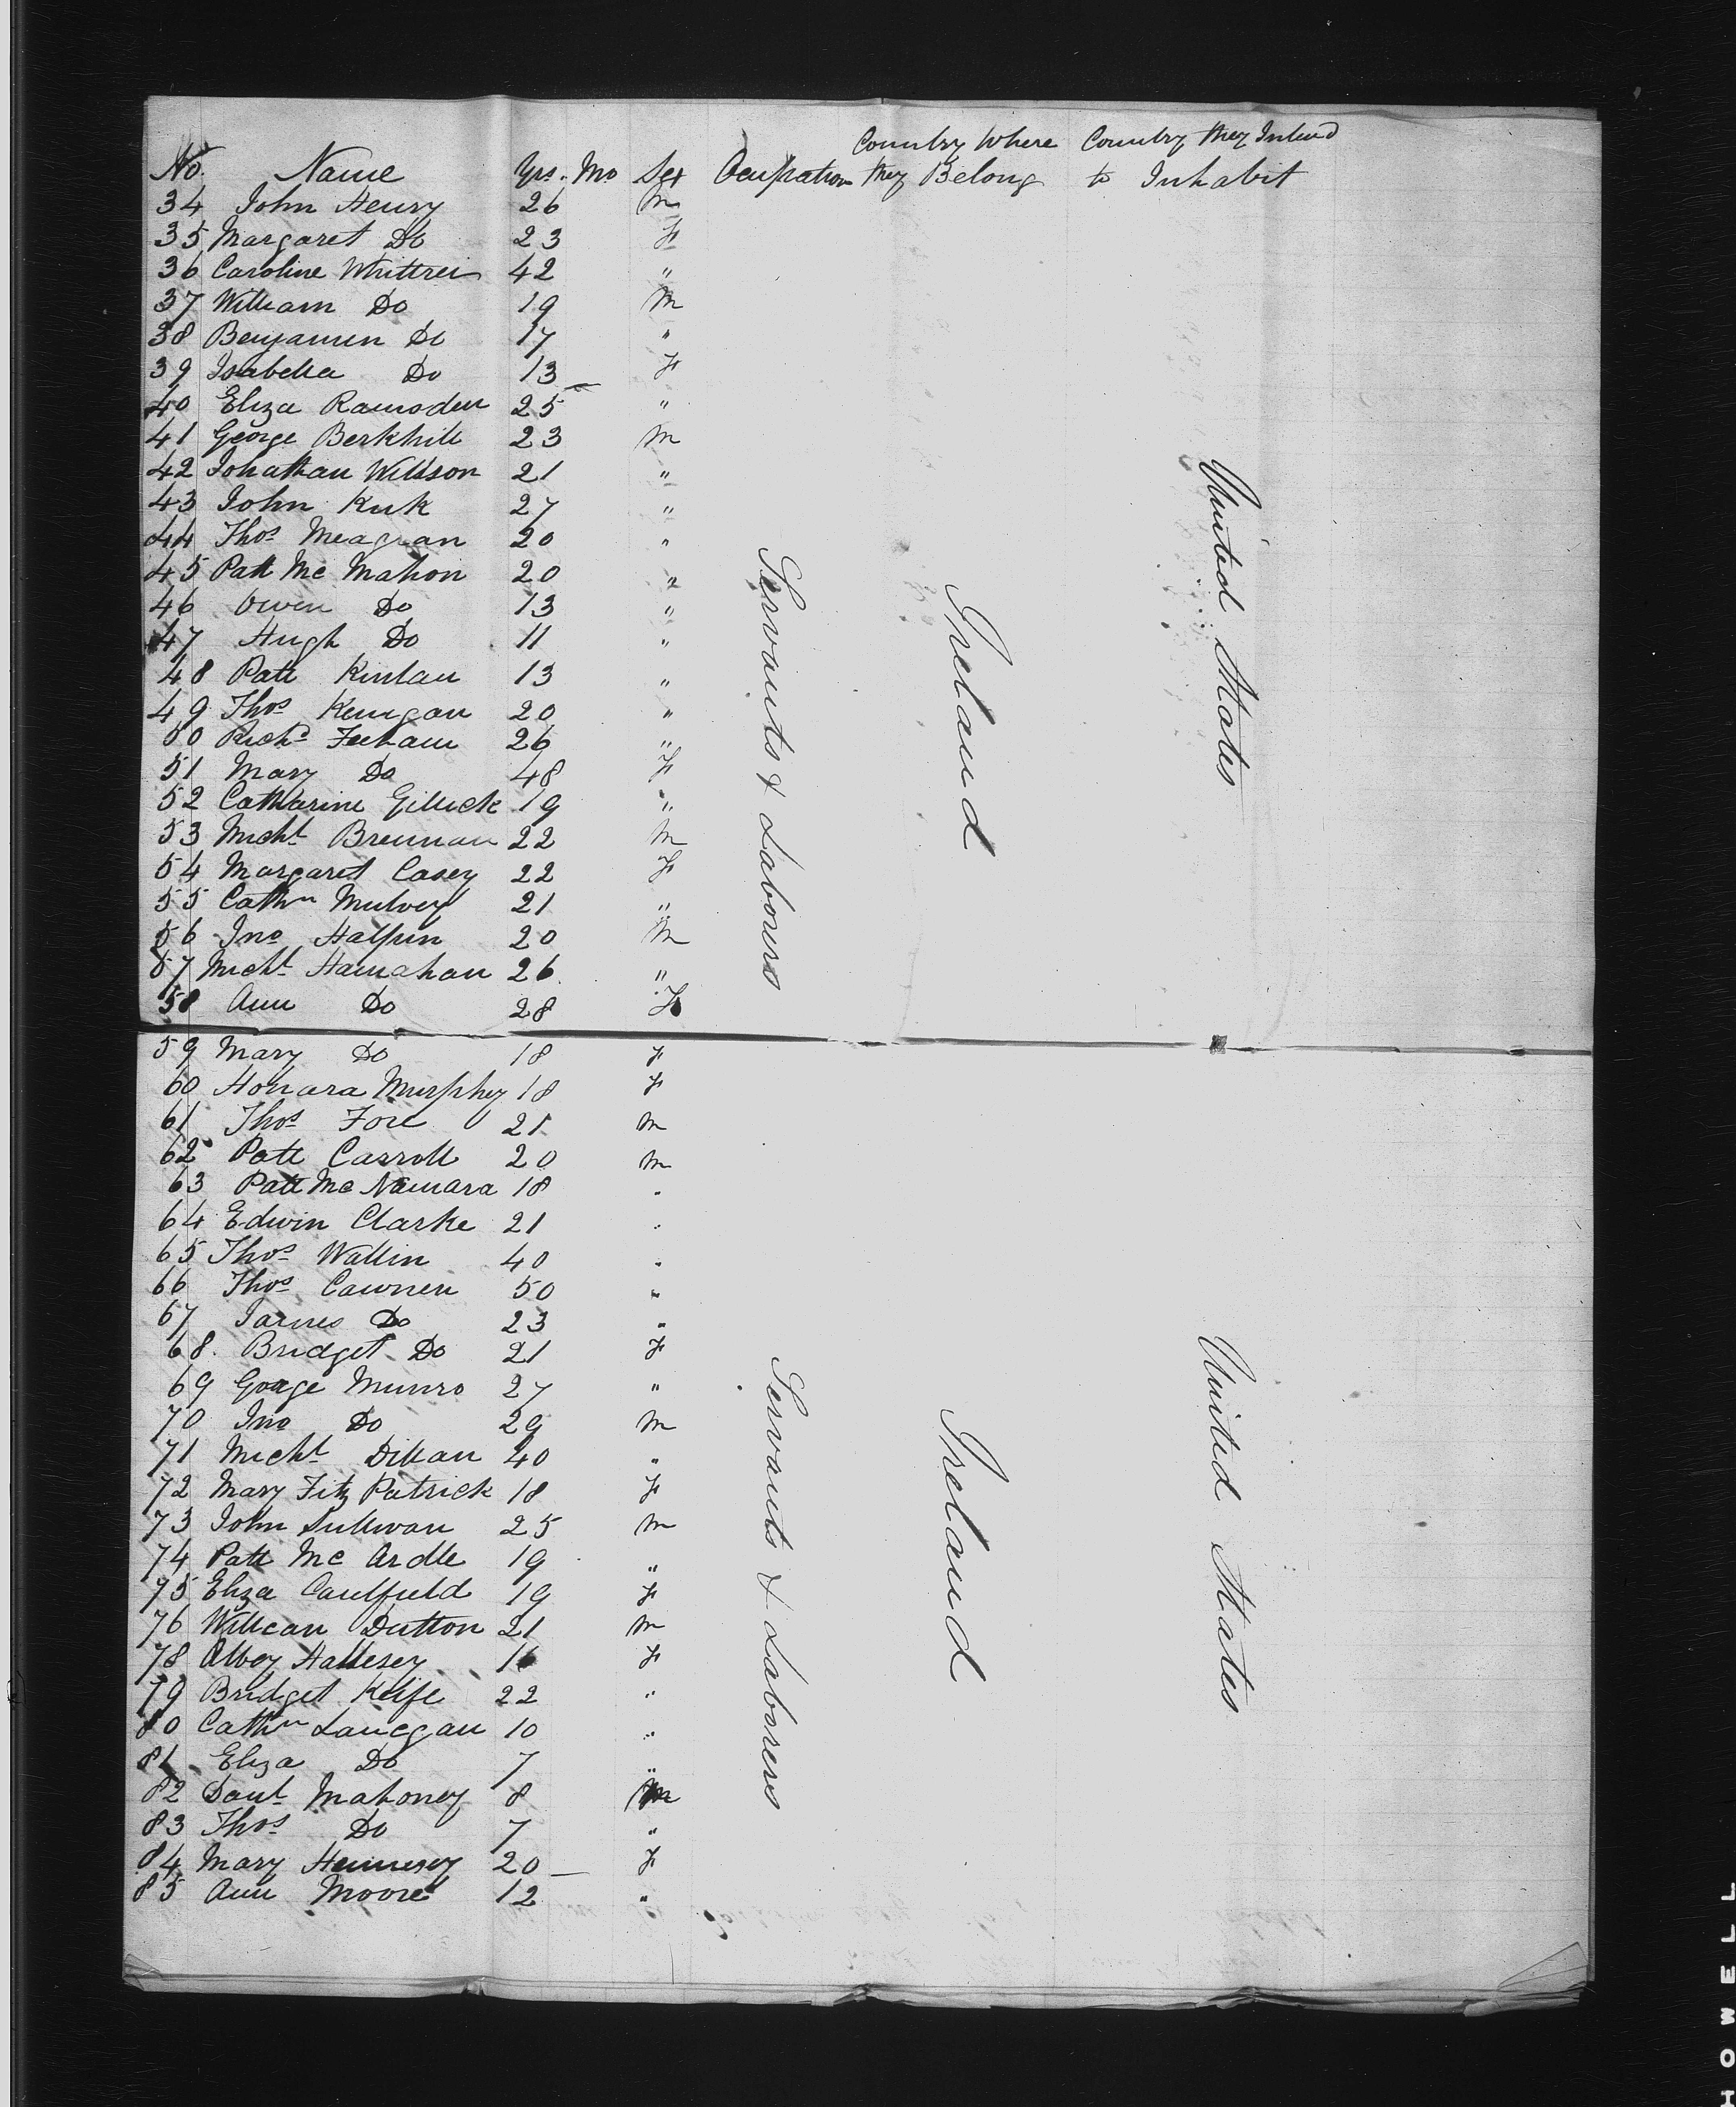 Country Where Country they Intend
No. Name Yrs. Mo Sex Ocupation they Belong to Inhabit
34 John Henry 26 M
35 Margaret Do 23 F
36 Caroline 42 "
37 William Do 19 M
38 Benjamin Do 17 "
39 Isabella Do 13 F
40 Eliza Ramsden 25 "
41 George Berkhill 23 M
42 Johathan Willson 21 "
43 John Kirk 27 "
44 Thos Meagran 20 "
45 Patt Mc Mahon 20 "
46 Owen Do 13 "
47 Hugh Do 11 "
48 Patt Kinlan 13 "
49 Thos Kerrigan 20 "
50 Richd Feeham 26 "
51 Mary Do 48 F
52 Catharine Gillick 19 "
53 Michl Brennan 22 M
54 Margaret Casey 22 F
55 Cathn Mulvey 21 "
56 Jno Halpin 20 M
57 Michl Hanrahan 26 "
58 Ann Do 28 F
Servants & Labourers
Ireland
United States
59 Mary Do 18 F
60 Honara Murphey 18 F
61 Thos Fore 21 M
62 Patt Carroll 20 M
63 Patt Mc Namara 18 "
64 Edwin Clarke 21 "
65 Thos Wallin 40 "
66 Thos 50 "
67 James Do 23 "
68. Bridget Do 21 F
69 Goage Munro 27 "
70 Jno Do 29 M
71 Michl Dillan 40 "
72 Mary Fitz Patrick 18 F
73 John Sullivan 25 M
74 Patt Mc Ardle 19 "
75 Eliza Caulfield 19 F
76 William Dutton 21 M
78 Abbey Hallesey 16 F
79 Bridget Keife 22 "
80 Cathn Lanegan 10 "
81 Eliza Do 7 "
82 Danl Mahoney 8 M
83 Thos Do 7 "
84 Mary Hennesey 20 F
85 Ann Moore 12 "
Servants & Laborers
Ireland
United States
HOWELL